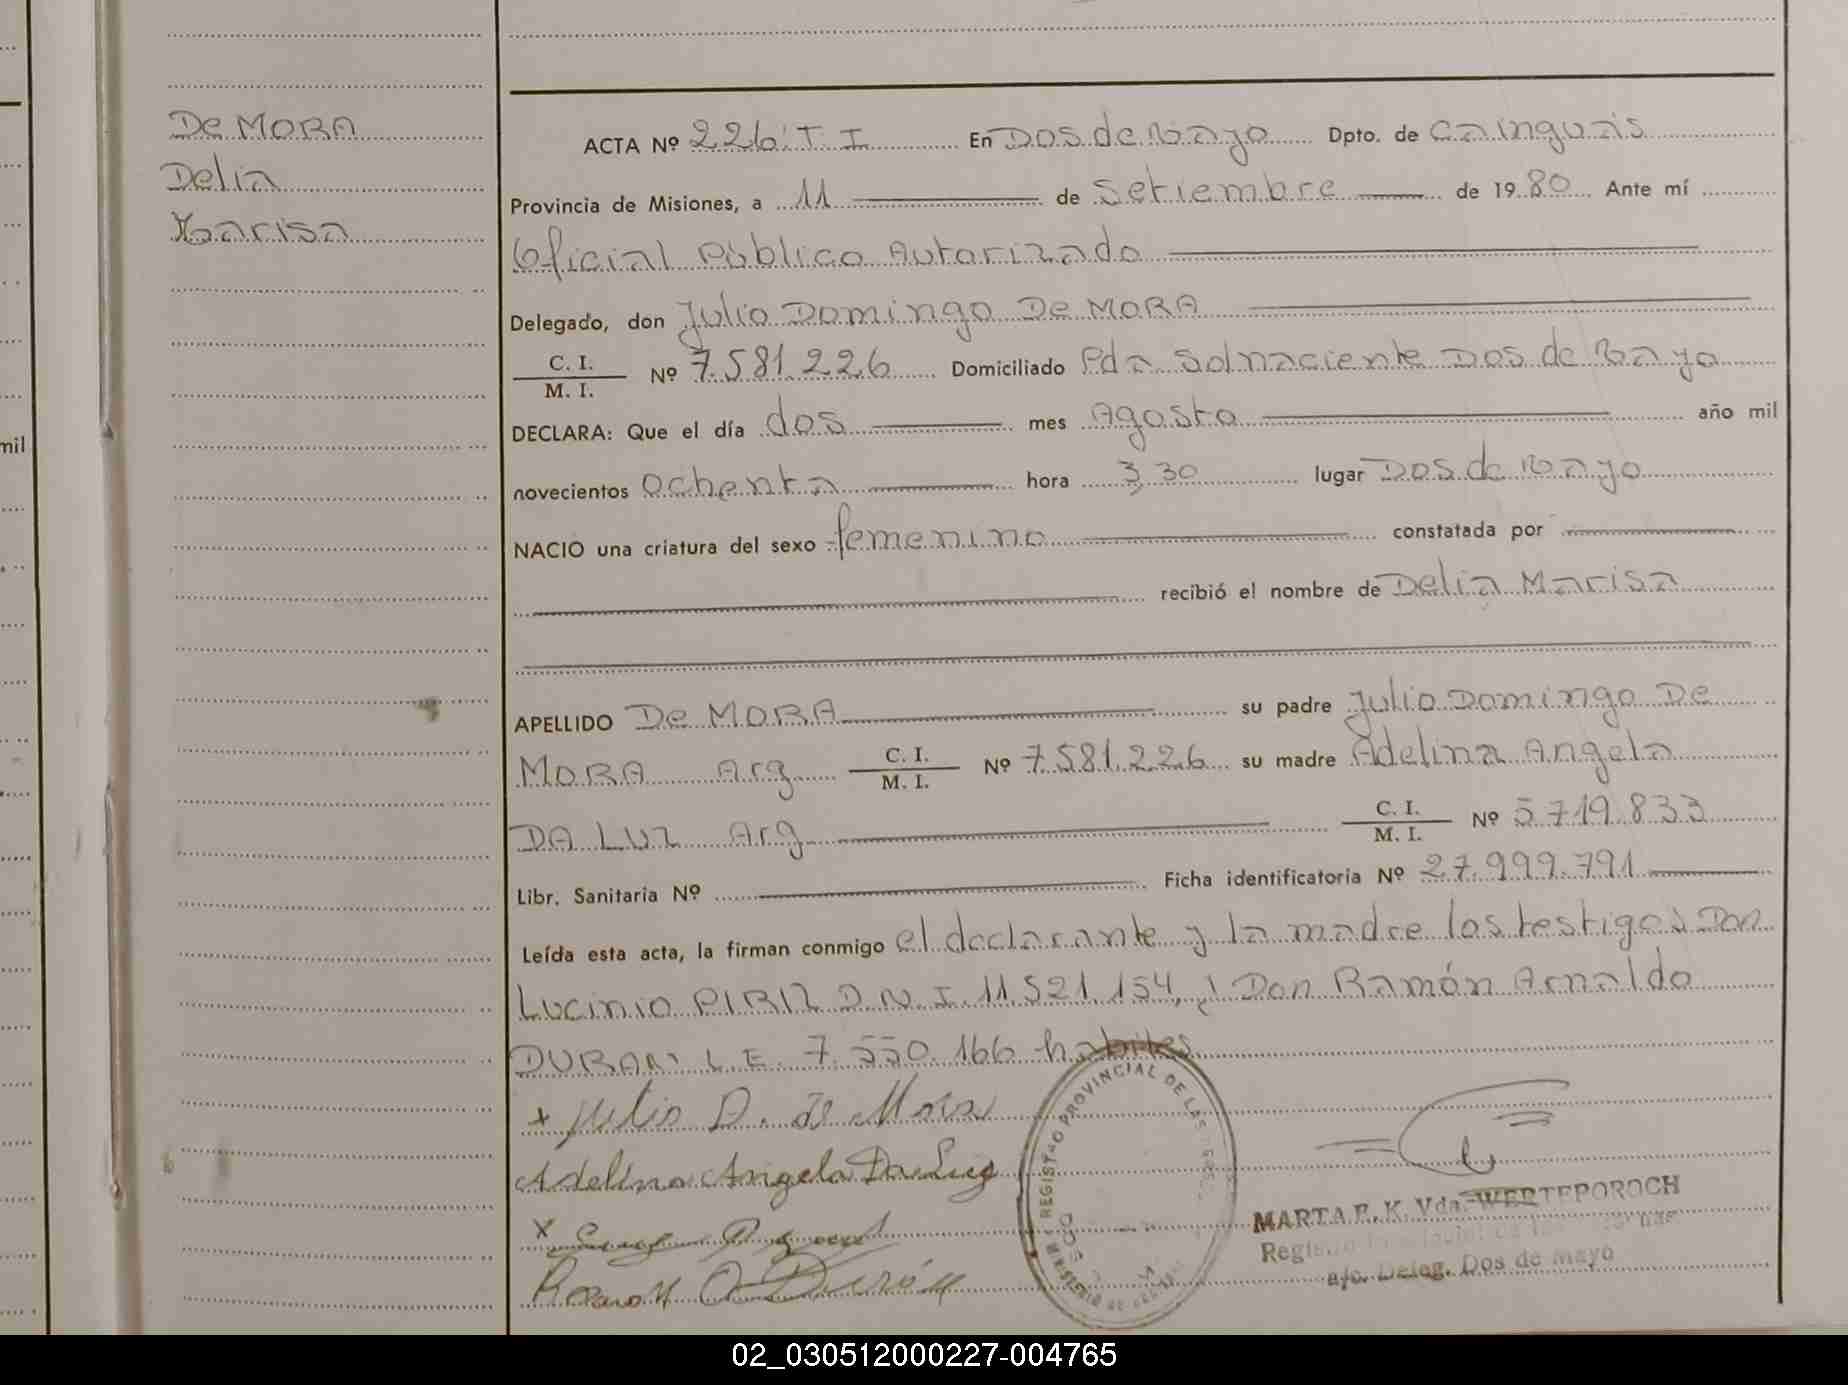 De MORA
Delia
Marisa
ACTA Nº 226 T I En Dos de Mayo Dpto. de Cainguás
Provincia de Misiones, a 11 de Setiembre de 1980 Ante mí
Oficial Público Autorizado
Delegado, don Julio Domingo De MORA
C. I.
M. I. Nº 7.581.226 Domiciliado Pda Sol naciente Dos de Mayo
DECLARA: Que el día dos mes Agosto año mil
novecientos ochenta hora 3,30 lugar Dos de Mayo
NACIO una criatura del sexo femenino constatada por
recibió el nombre de Delia Marisa
APELLIDO De MORA su padre Julio Domingo De
MORA Arg C. I.
M. I. Nº 7.581.226 su madre Adelina Angela
DA LUZ Arg C. I.
M. I. Nº 5.719.833
Libr. Sanitaria Nº Ficha identificatoria Nº 27.999.791
Leída esta acta, la firman conmigo el declarante y la madre los testigos Don
Lucinio PIRIZ D.N.I. 11.521.154, y Don Ramón Arnaldo
DURAN L.E. 7.550.166 habiles
x Julio D. de Mora
Adelina Angela Da Luz
x
Ramon A Durán
REGISTRO PROVINCIAL DE LAS
MARTA E. K. Vda. WERTEPOROCH
a/c. Deleg. Dos de mayo
mil
02_030512000227-004765